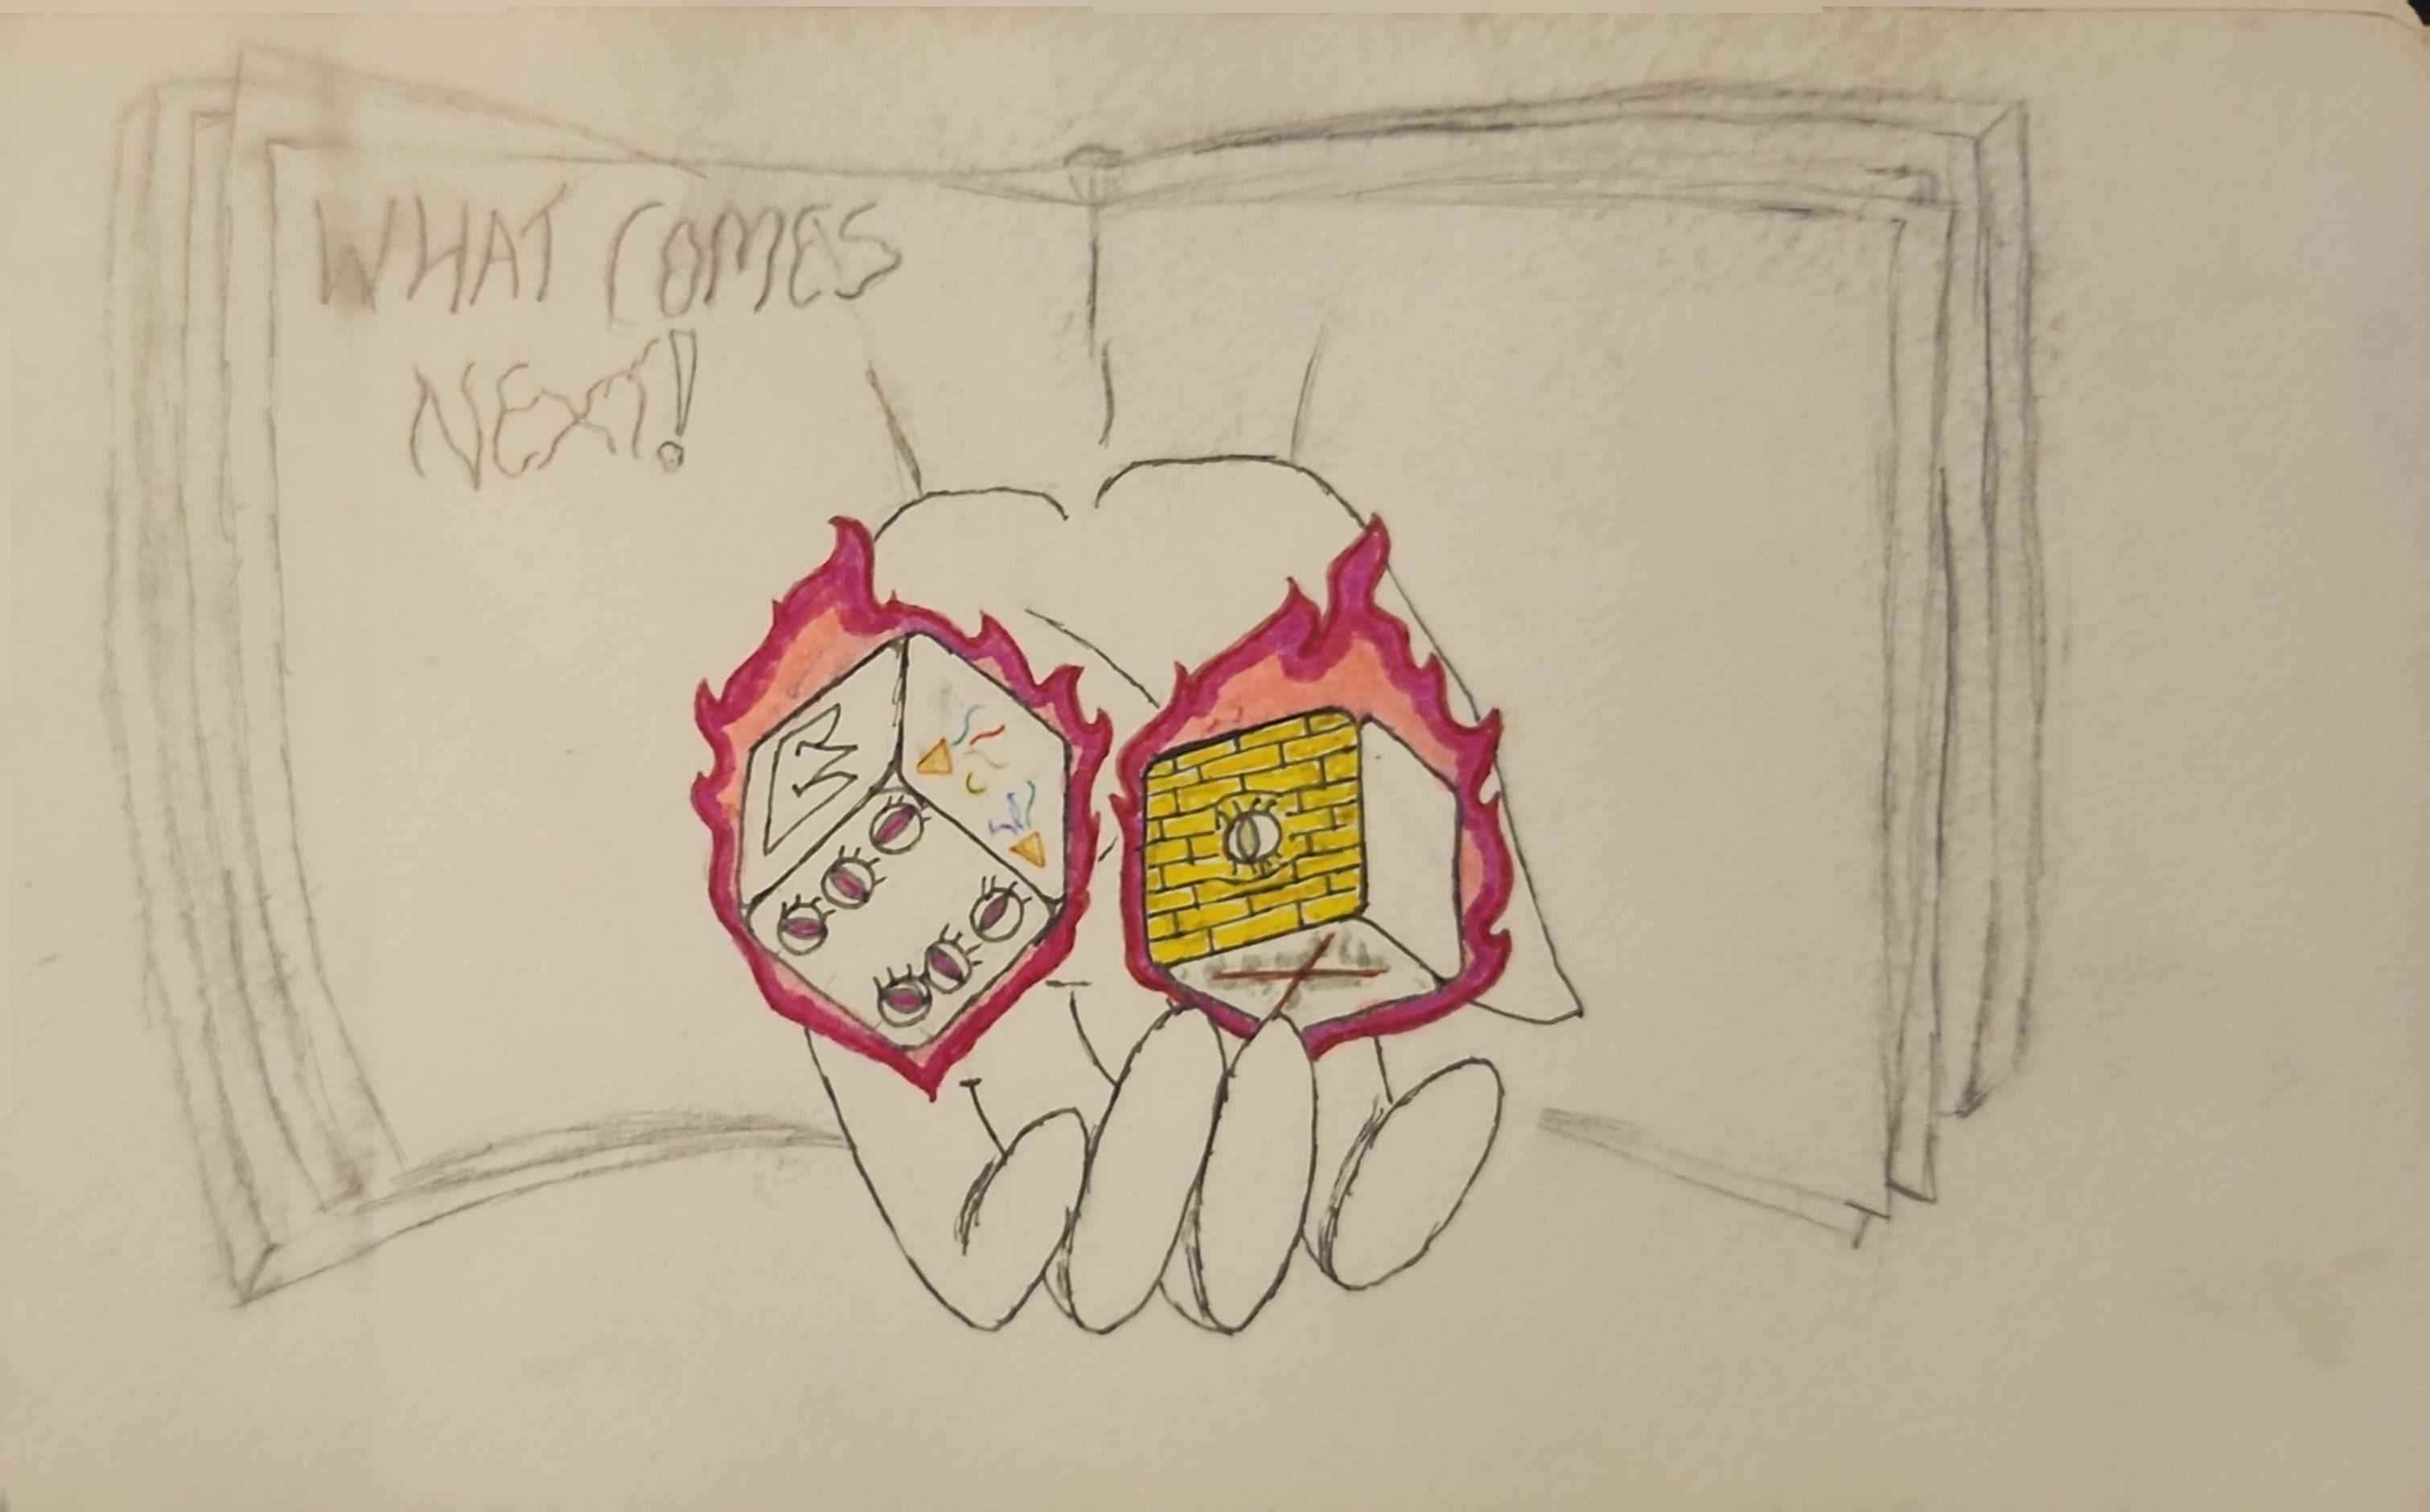 WHAT COMES
NEXT!